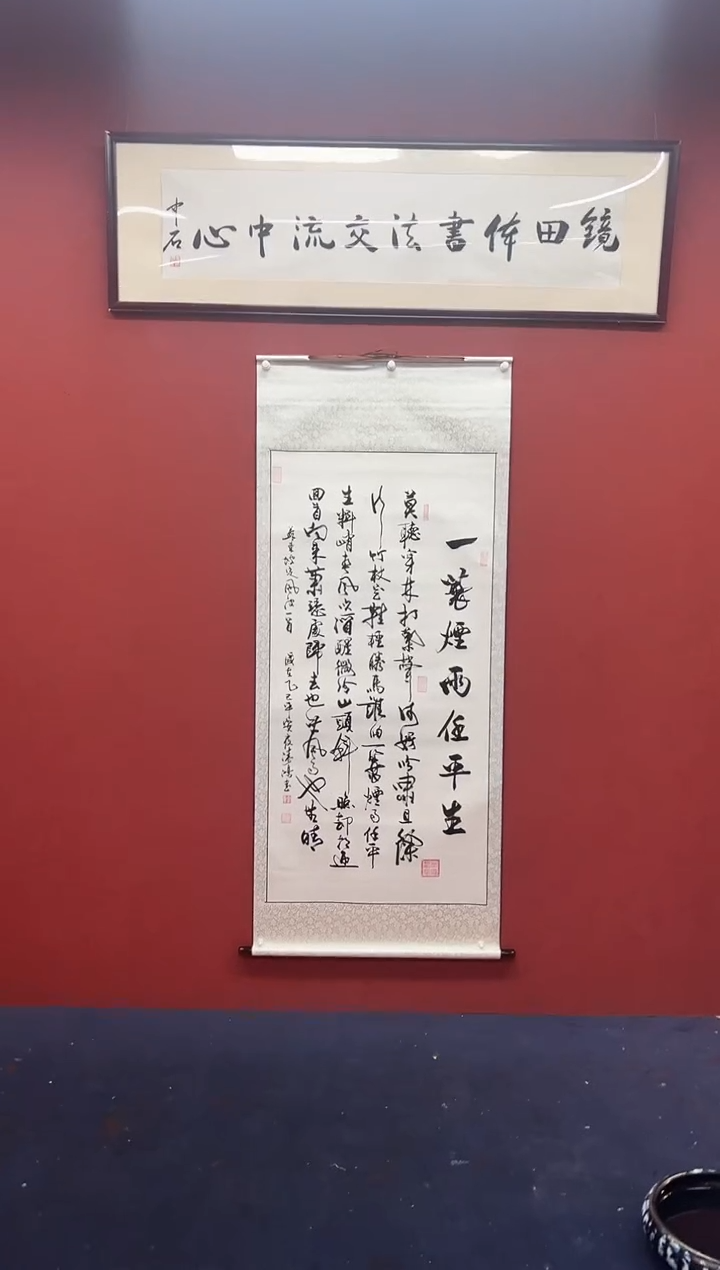 鏡田体書法交流中心
中石
一蓑煙雨任平生
莫聽穿林打葉聲何妨吟嘯且徐
行竹杖芒鞋輕勝馬誰怕一蓑煙雨任平
生料峭春風吹酒醒微冷山頭斜照却相迎
回首向來蕭瑟處歸去也無風雨也無晴
定風波一首 歲在乙巳年